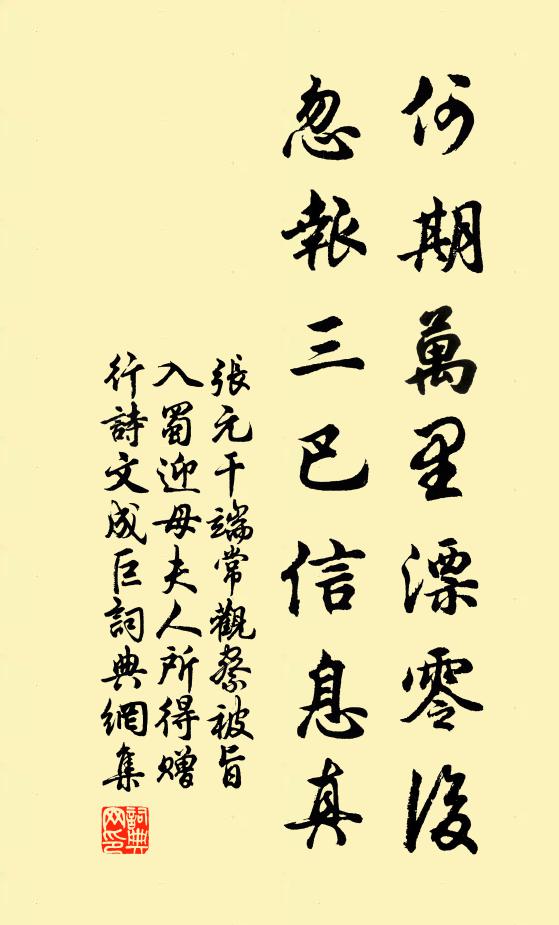 何期萬里漂零後
忽報三巴信息真
張元干端常觀察被旨
入蜀迎母夫人所得贈
行詩文成巨詞典網集
詞典
网印